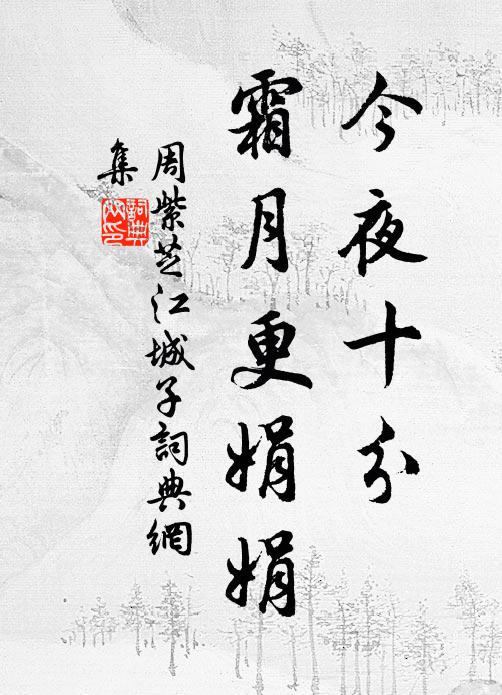 今夜十分
霜月更娟娟
周紫芝江城子詞典網
集
詞典網印